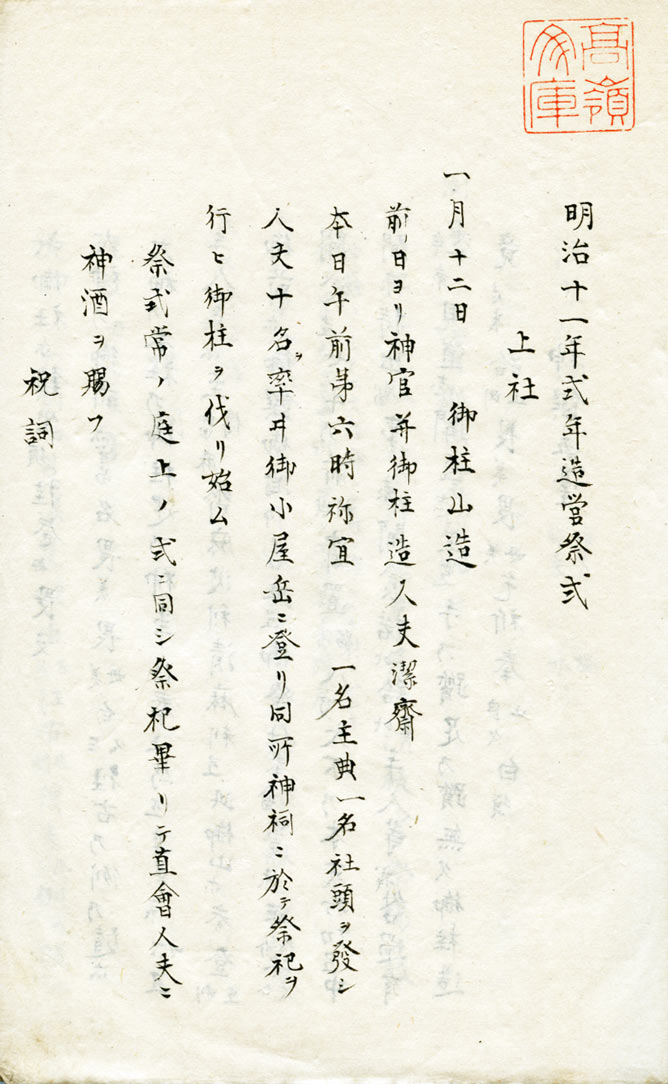 高嶺
文庫
明治十一年式年造営祭式
上社
一、月十二日 御柱山造
前日ヨリ神官并御柱造人夫潔齋
本日午前第六時祢宜 一名主典一名社頭ヲ發シ
人夫十名ヲ率ヰ御小屋岳ニ登リ同所神祠ニ於テ祭祀ヲ
行ヒ御柱ヲ伐リ始ム
祭式常ノ庭上ノ式ニ同シ祭祀畢リテ直會人夫ニ
神酒ヲ賜フ
祝詞